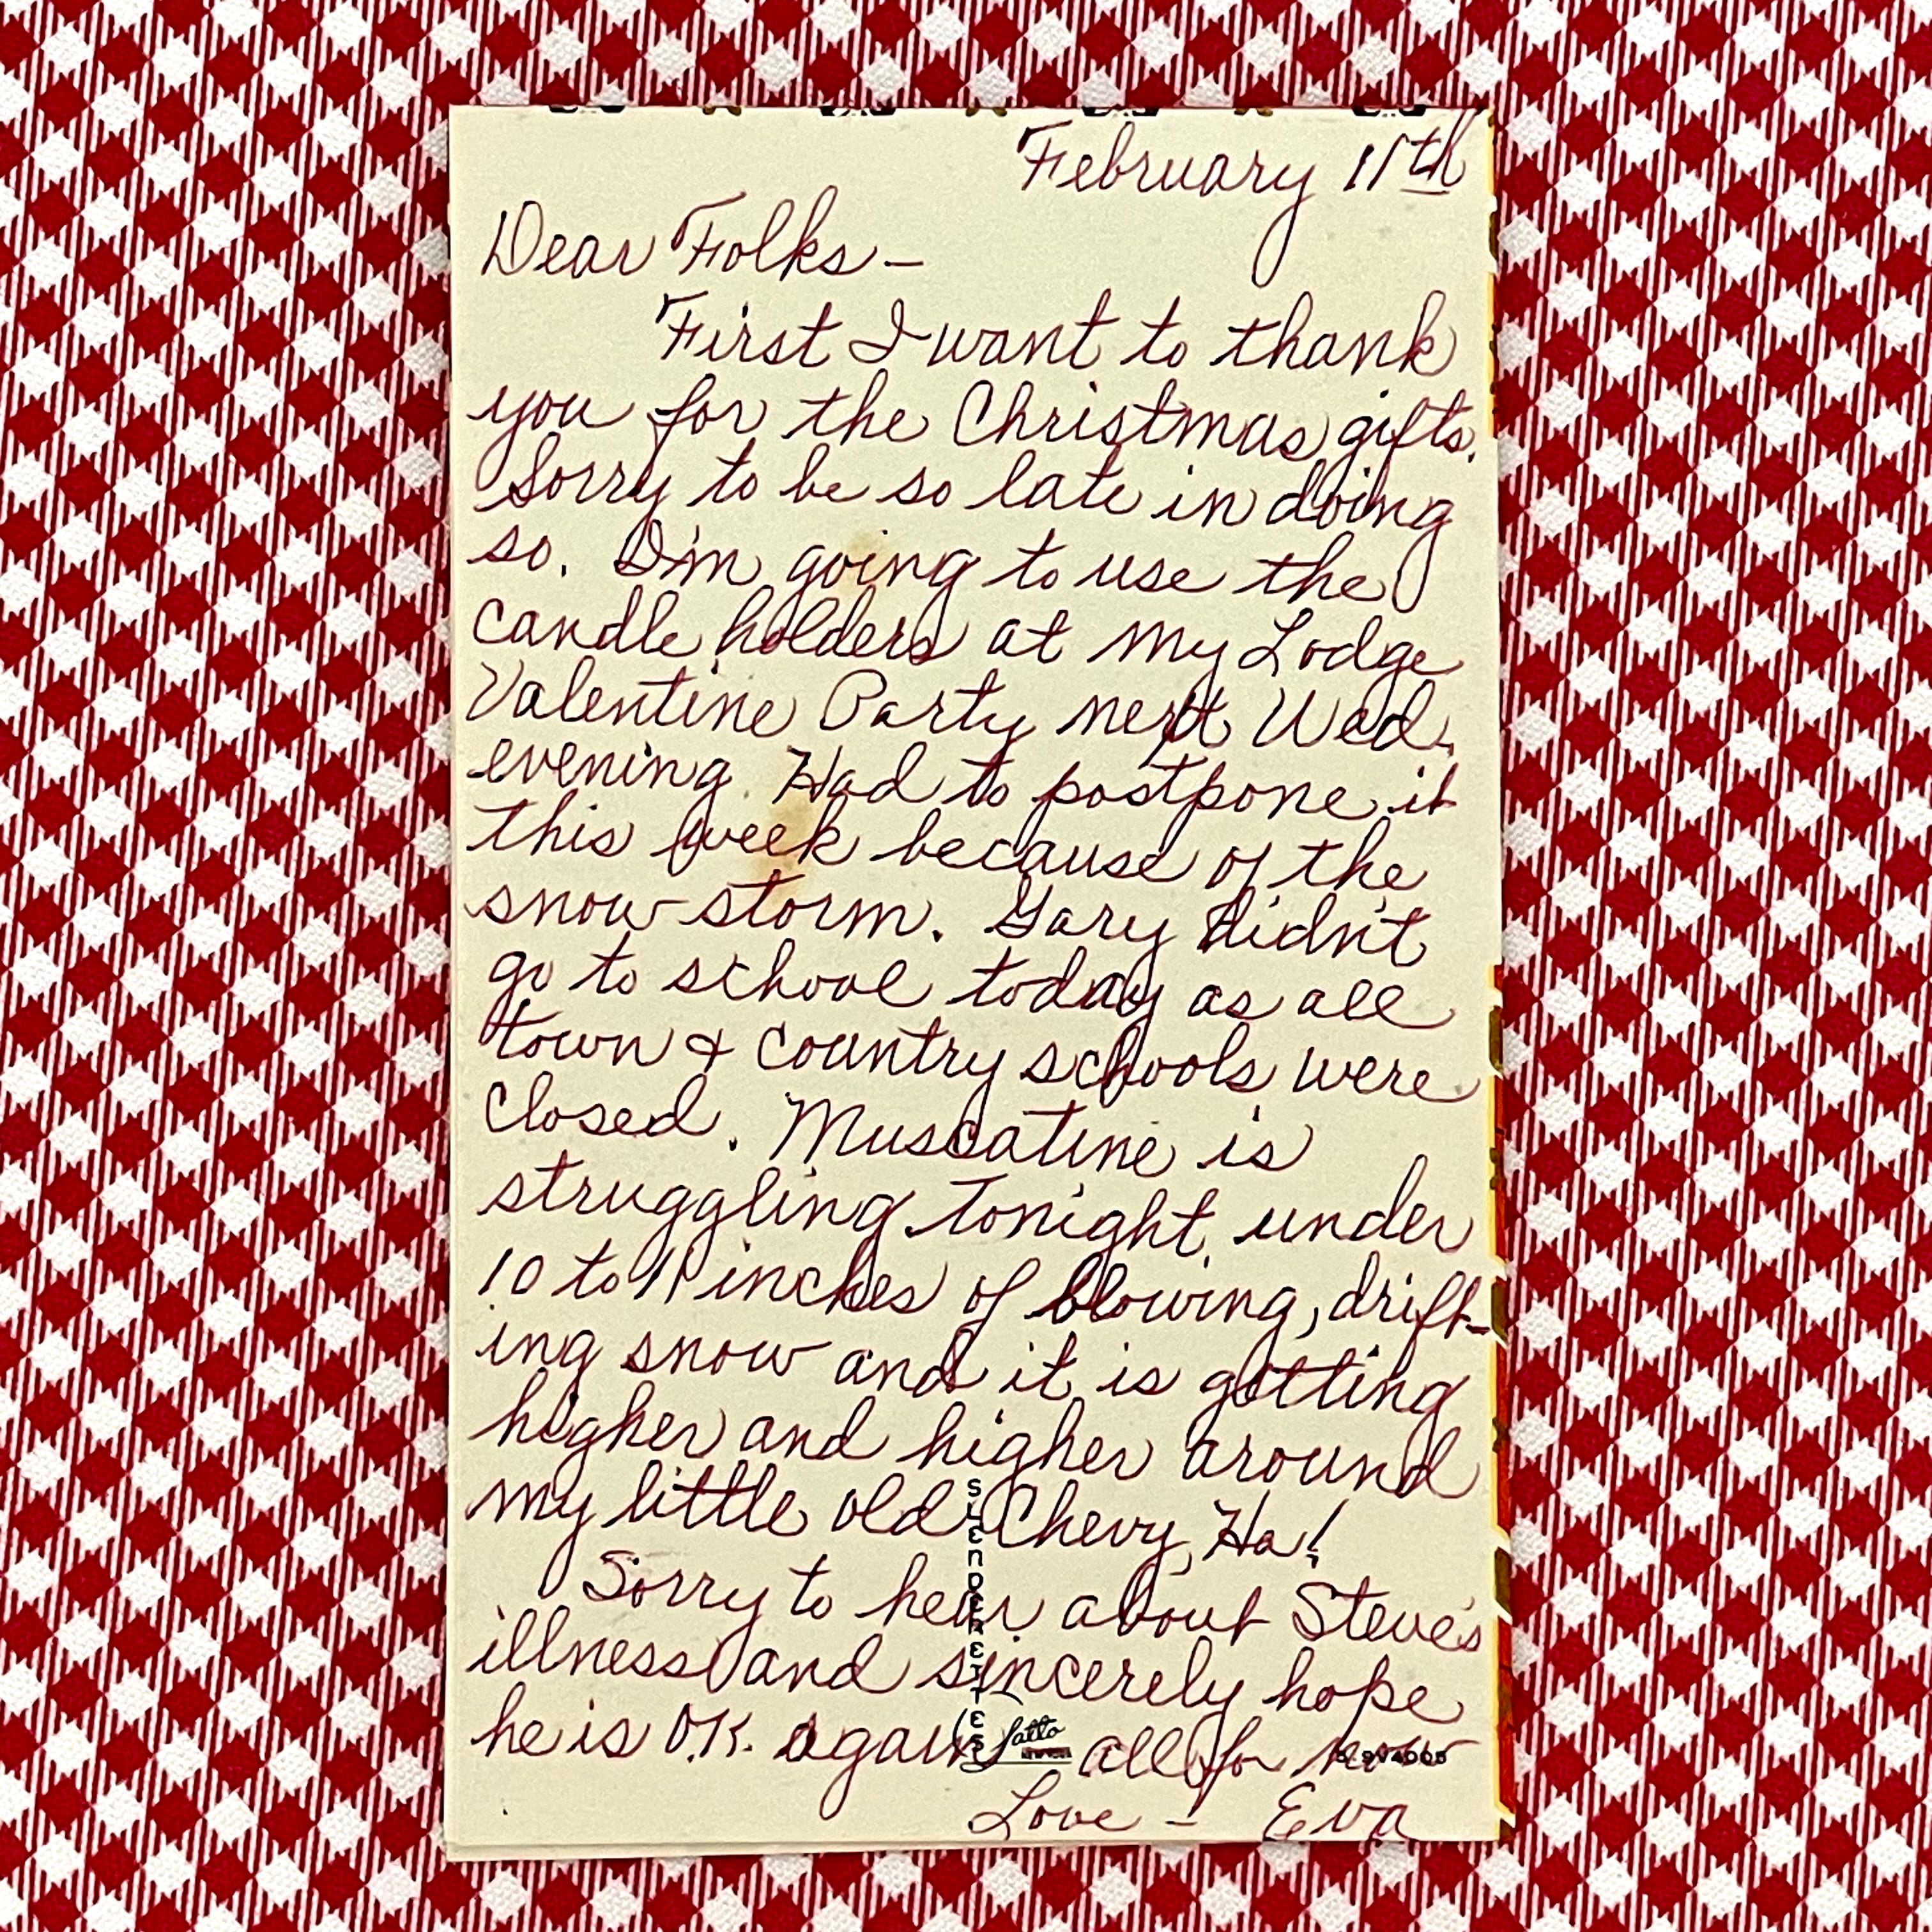 February 11th
Dear Folks –
First I want to thank
you for the Christmas gifts.
Sorry to be so late in doing
so. I'm going to use the
candle holders at my Lodge
Valentine Party next Wed.
evening. Had to postpone it
this week because of the
snow storm. Gary didn't
go to school today as all
town & country schools were
closed. Muscatine is
struggling tonight under
10 to 11 inches of blowing, drift-
ing snow and it is getting
higher and higher around
my little old Chevy, Ha!
Sorry to hear about Steve's
illness and sincerely hope
he is O.K. again. all for now
Love – Eva
SLENDERETTES
Gatto